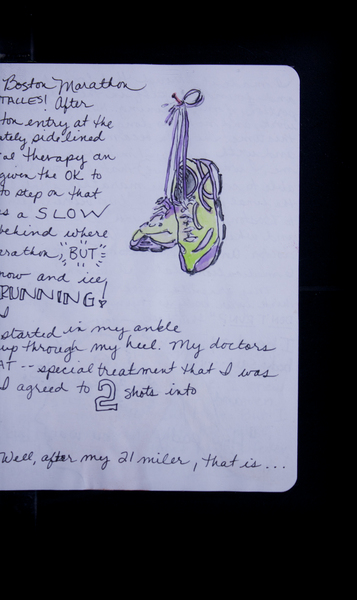 Boston Marathon
TALLES! After
ton entry at the
ately sidelined
al therapy an
given the OK to
to step on that
s a SLOW
behind where
arathon, BUT
now and ice,
RUNNING!
I
started in my ankle
up through my heel. My doctors
AT -- special treatment that I was
I agreed to 2 shots into
Well, after my 21 miler, that is...